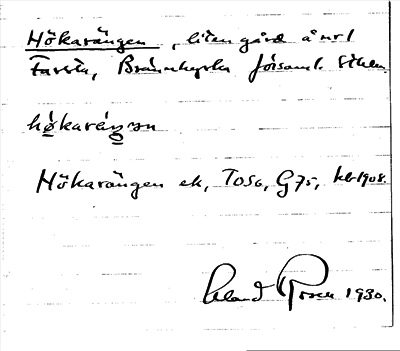 Hökarängen, liten gård å nr 1
Farsta, Brännkyrka församl. Sthlm
hökaräŋen
Hökarängen ek, To56, G75, kb 1908.
Erland Rosell 1930.